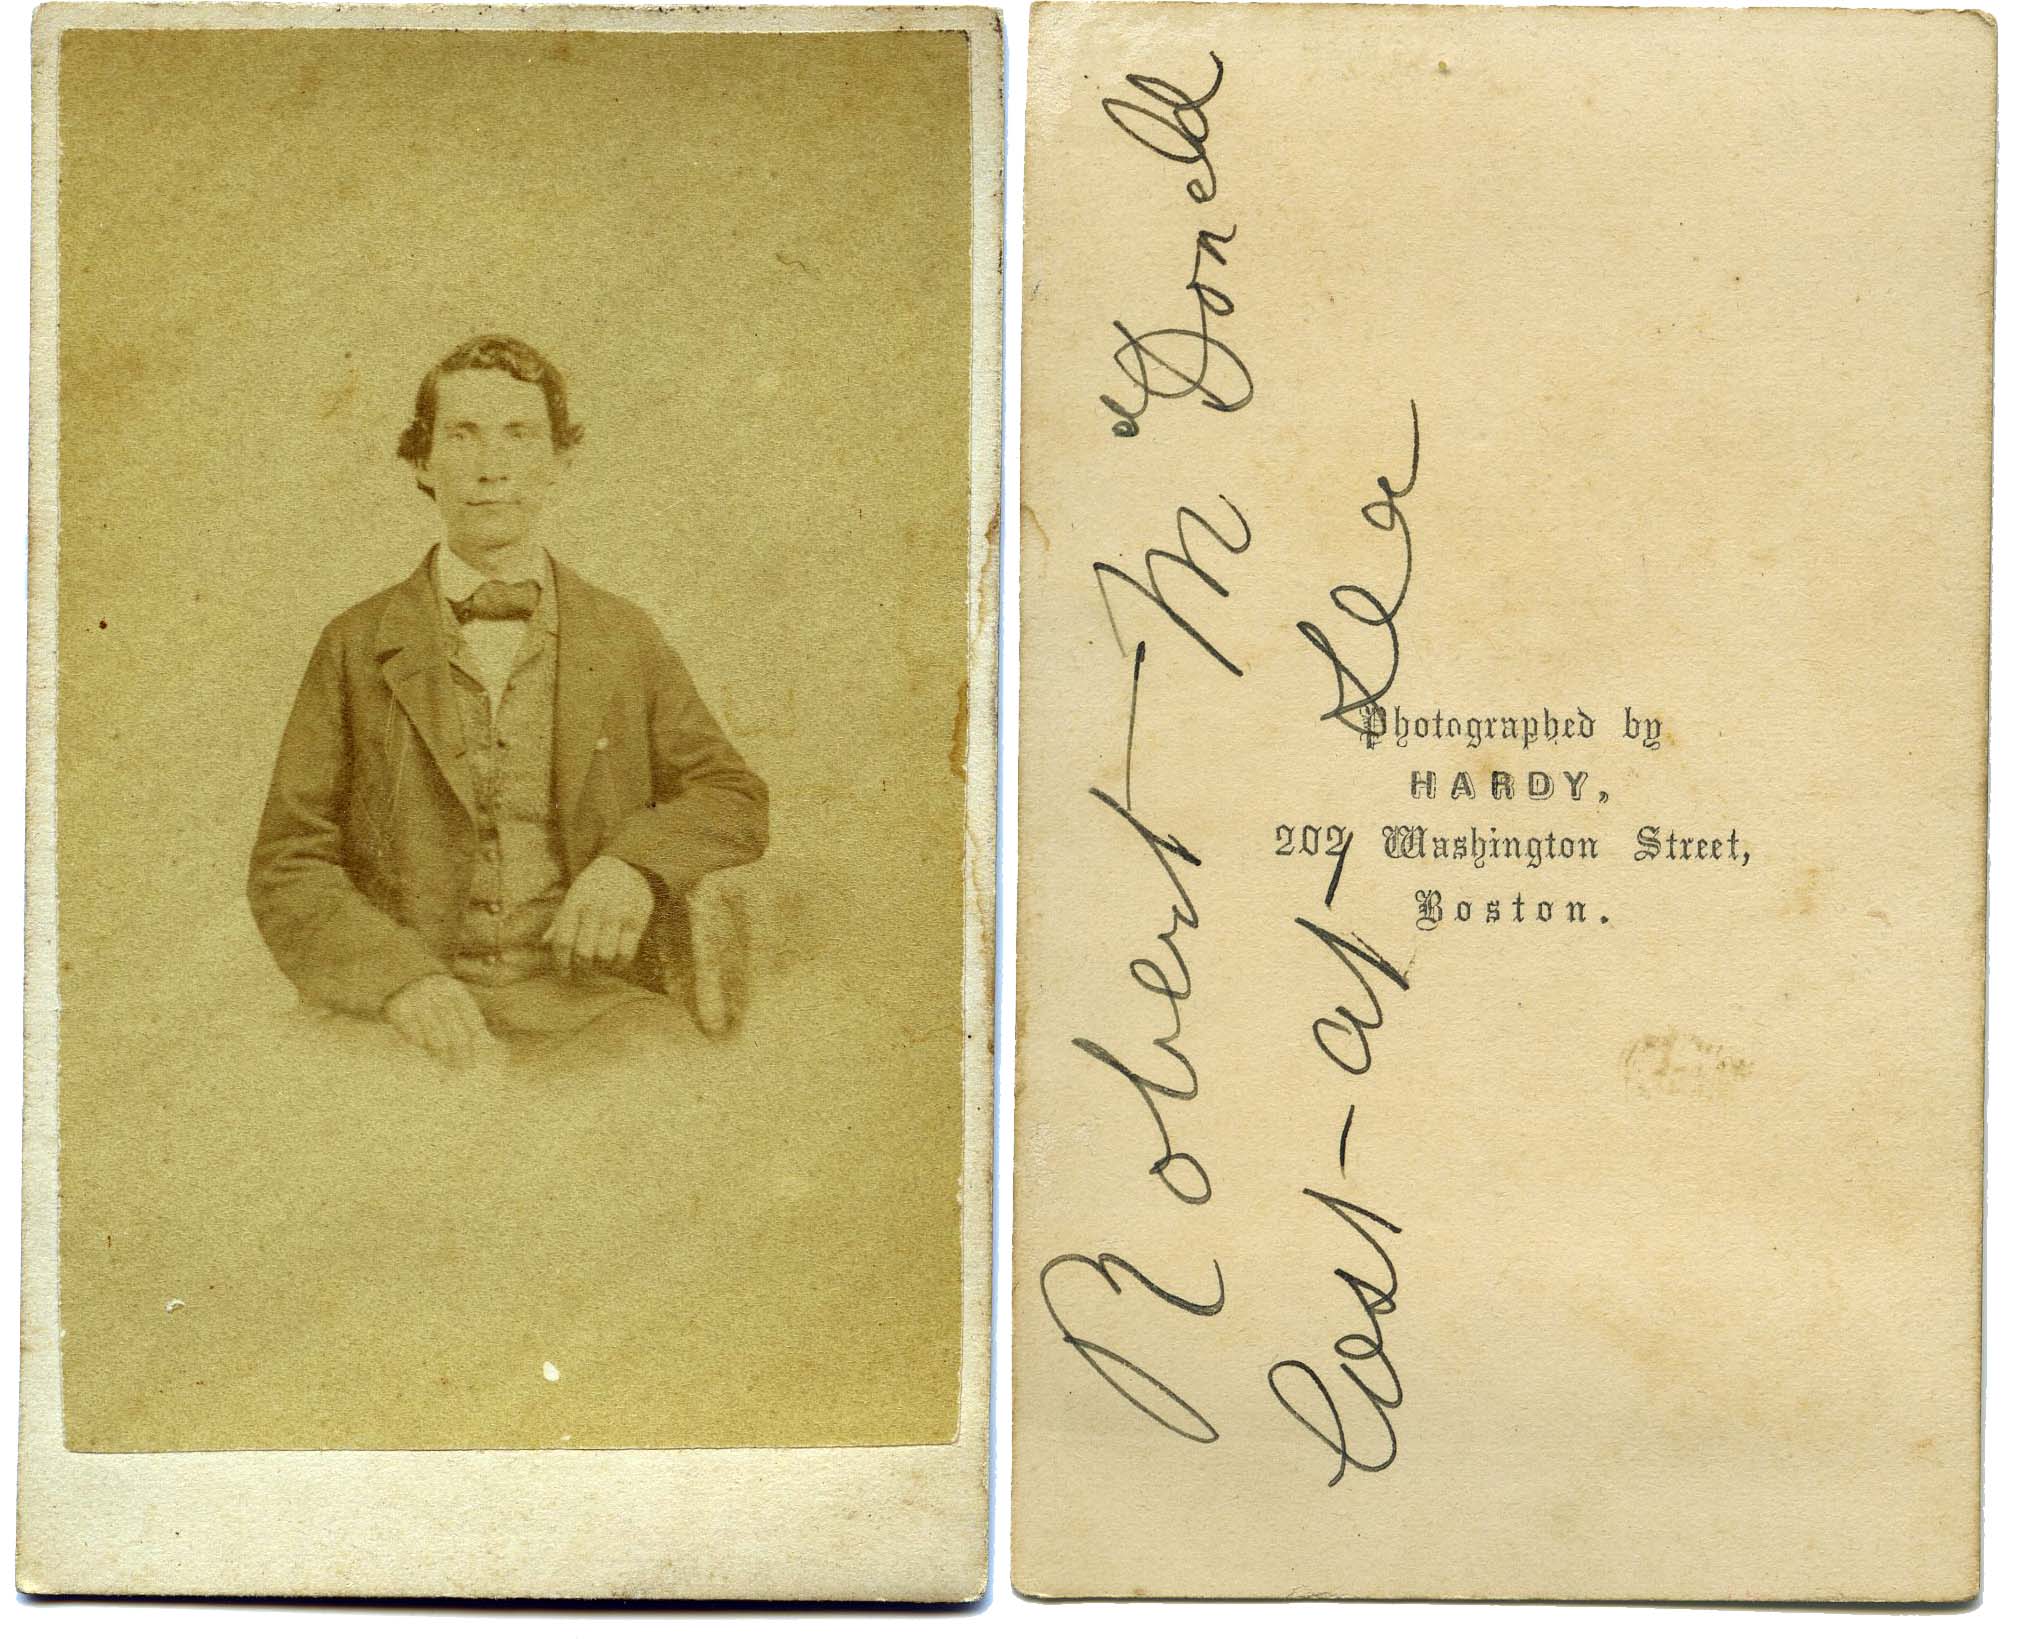 Robert McDoneld
Lost-at-Sea
Photographed by
HARDY,
202 Washington Street,
Boston.